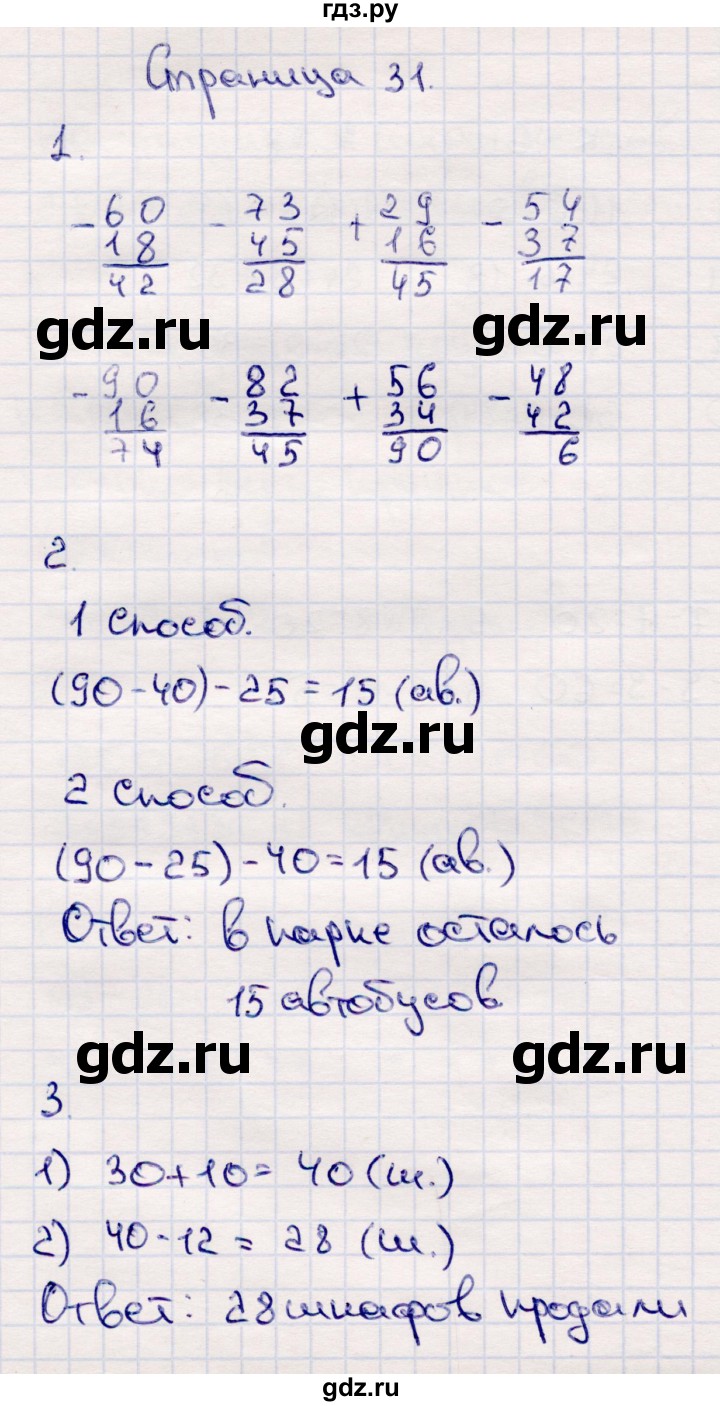 гдз.ру
Страница 31.
1.
- 60 - 73 + 29 - 54
18 45 16 37
42 28 45 17
gdz.ru gdz.ru
- 90 - 82 + 56 - 48
16 37 34 42
74 45 90 6
2.
1 способ.
(90-40)-25=15 (ав.)
gdz.ru
2 способ.
(90-25)-40=15 (ав.)
Ответ: в парке осталось
15 автобусов
gdz.ru gdz.ru
3.
1) 30+10= 40 (ш.)
2) 40-12 = 28 (ш.)
Ответ: 28 шкафов продали
gdz.ru